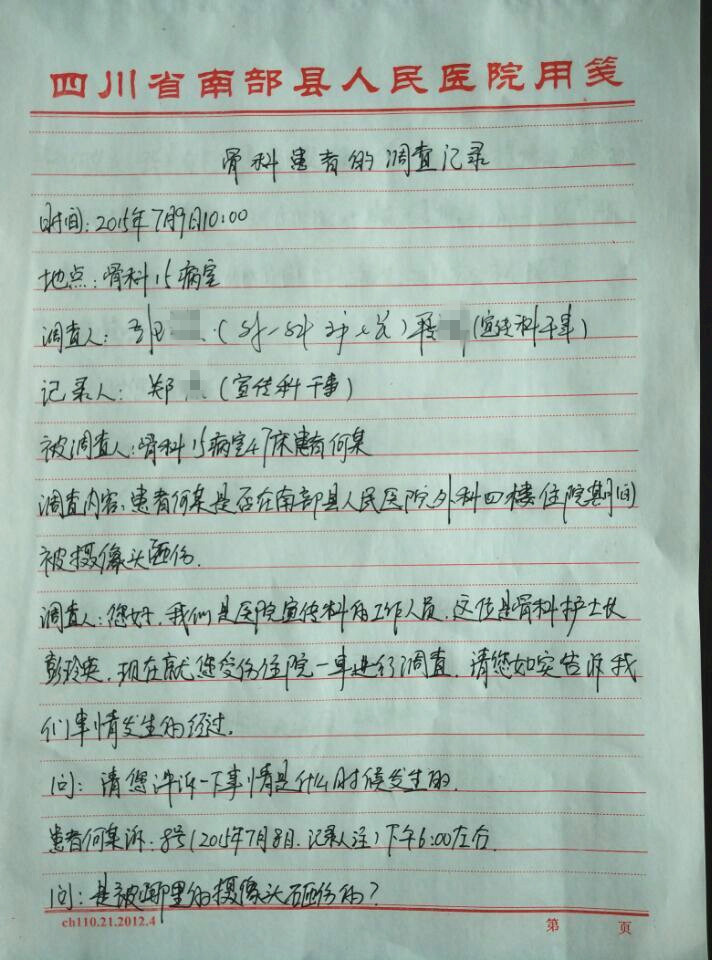 四川省南部县人民医院用笺
骨科患者的调查记录
时间：2015年7月9日10:00
地点：骨科15病室
调查人：(宣传科干事)
记录人：郑(宣传科干事)
被调查人：骨科15病室47床患者何某
调查内容：患者何某是否在南部县人民医院外科四楼住院期间
被摄像头砸伤.
调查人：您好，我们是医院宣传科的工作人员，这位是骨科护士长
彭玲英，现在就您受伤住院一事进行调查，请您如实告诉我
们事情发生的经过.
问：请您诉一下事情是什么时候发生的.
患者何某诉：8号(2015年7月8日.记录人注)下午6:00左右.
问：是被哪里的摄像头砸伤的？
ch110.21.2012.4
第 页